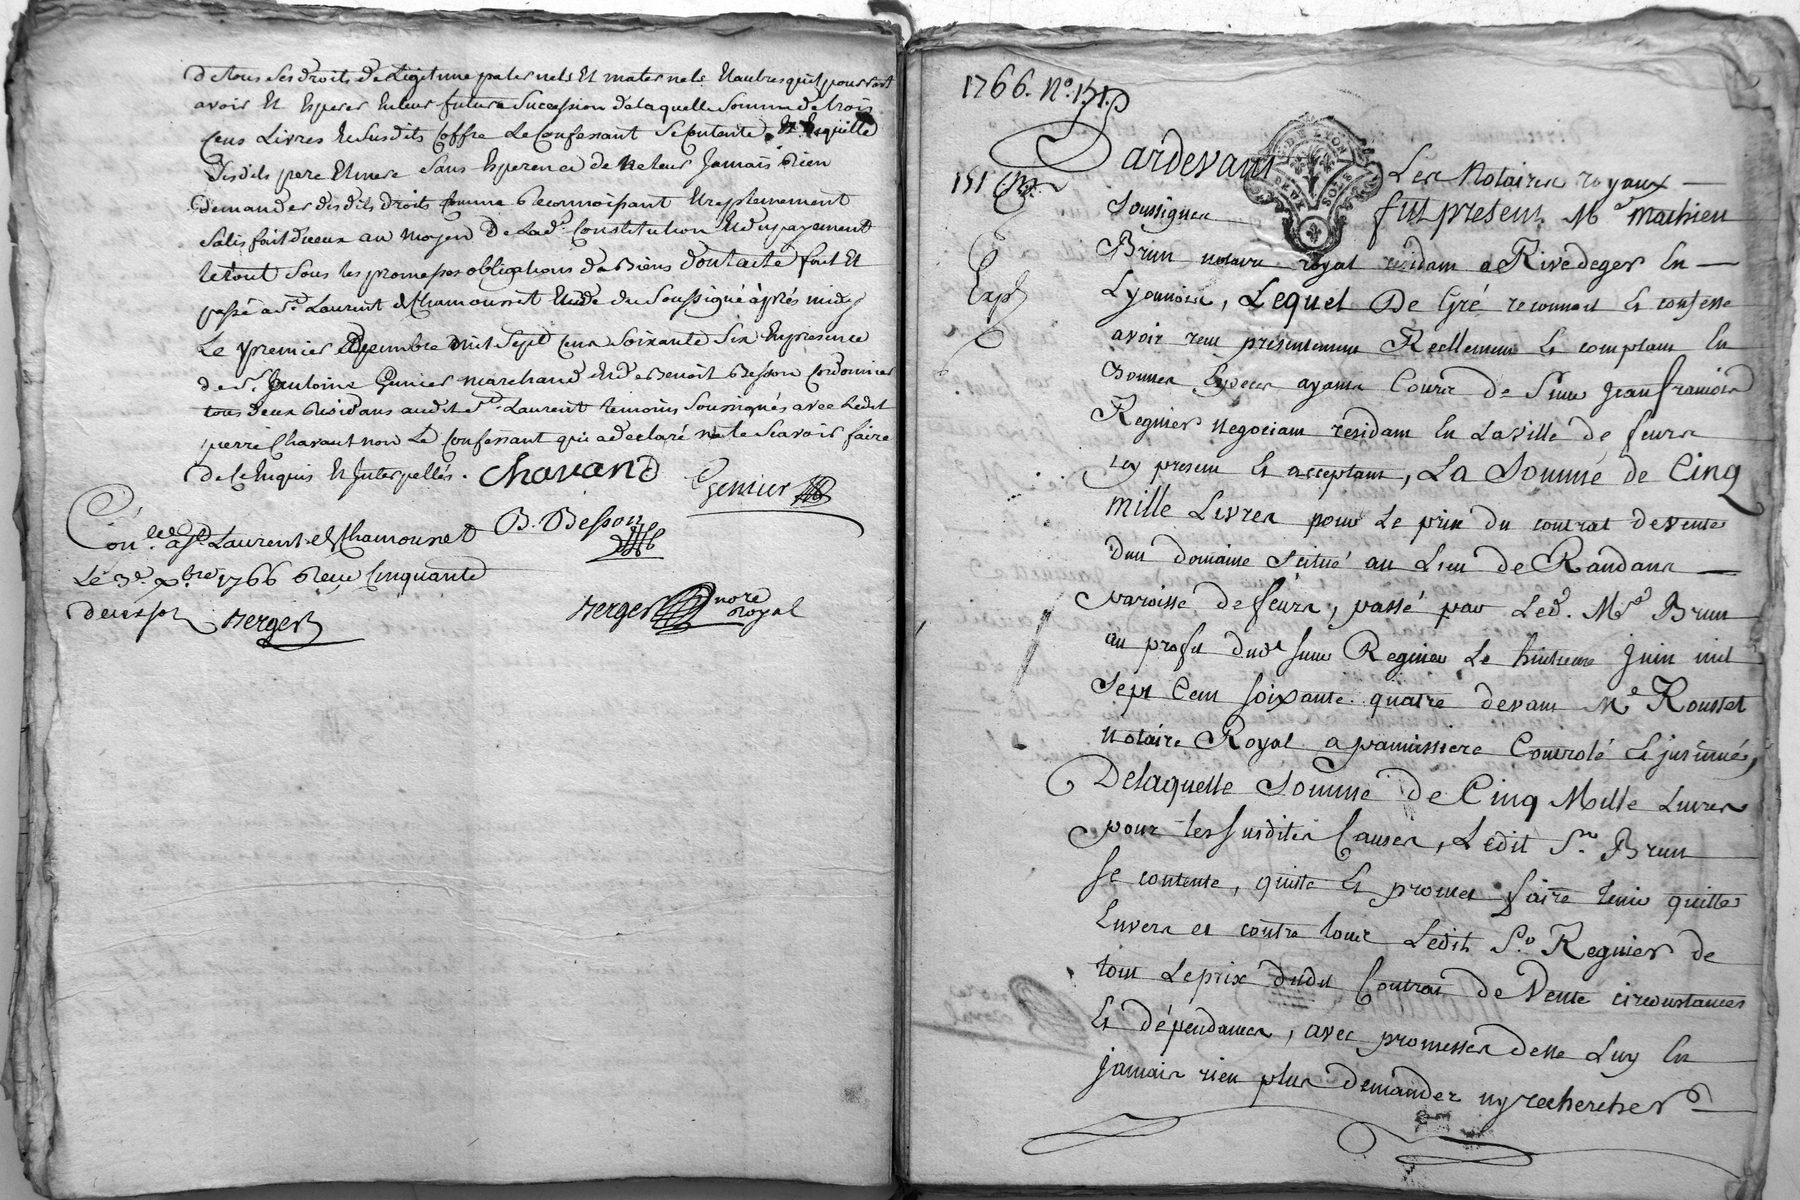 de tous ses droits de Legitime paternels Et maternels Et autres qu'il pourroit
avoir Et Esperer En leur future Succession de laquelle Somme de trois
Cens Livres Et Susdits Coffre Le Confessant Se Contente. Et En quitte
Sesdits pere Et mere Sans Esperence de Ne leur Jamais Rien
Demander desdits droits Comme Reconnoissant Etre pleinement
Satisfait d'iceux au Moyen De lad.e Constitution Et du payement
le tout Sous les promesses obligations de Biens dont acte fait Et
passé a St. Laurent de Chamousset Etude du Soussigné après midy
Le premier decembre Mil Sept Cens Soixante Six En presence
de Sr. Antoine Genier marchand Et de Benoit Besson Cordonnier
tous deux Residans audit St. Laurent temoins Soussignés avec Ledit
pierre Chavant non Le Confessant qui a declaré Ne le Scavoir faire
de ce Enquis Et Interpellés. Chavand Genier
B. Besson
Con.lé a St Laurent de Chamousset
Le 3e. xbre 1766 Receu Cinquante
deux sol Berger
Berger nore Royal
1766. No. 151.
Pardevant Les Notaires royaux
151
DE LYON
DEUX SOLS
Soussignes fut present Me Mathieu
Brun notaire royal residant a Rivedeger En
Exp
Lyonnois, Lequel De Gré reconnoit et confesse
avoir receu presentement Reellement et comptant En
Bonnes Especes ayants Cours de Sieur Jean francois
Regnier Negociant residant En La ville de feurs
icy present et acceptant, La Somme de Cinq
mille Livres pour Le prix du contrat de vente
d'un domaine Scitué au Lieu de Randans
paroisse de feurs, passé par Led. Me Brun
au profit dudt sieur Regnier Le huitieme Juin mil
Sept Cent soixante quatre devant Me Rousset
Notaire Royal a pannissiere Controlé et jnsinué,
De laquelle Somme de Cinq Mille Livres
pour les susdites Causes, Ledit Sr. Brun
se contente, quitte et promet faire tenir quitte
Envers et contre tous Ledit Sr. Regnier de
tout Le prix dudit Contrat de Vente circonstances
Et dépendances, avec promesses de ne Luy En
jamais rien plus demander ny rechercher